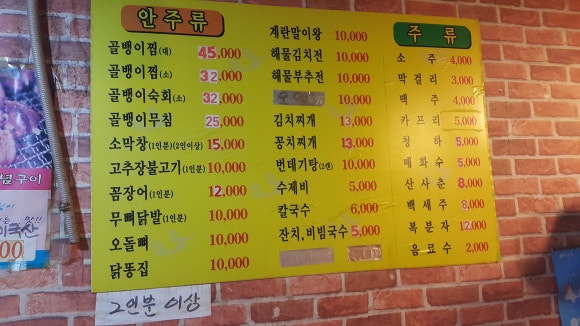 안주류
골뱅이찜(대) 45,000
골뱅이찜(소) 32,000
골뱅이숙회(소) 32,000
골뱅이무침 25,000
소막창(1인분)(2인이상) 15,000
고추장불고기(1인분) 10,000
꼼장어(1인분) 12,000
무뼈닭발(1인분) 10,000
오돌뼈 10,000
닭똥집 10,000
계란말이왕 10,000
해물김치전 10,000
해물부추전 10,000
10,000
김치찌개 13,000
꽁치찌개 13,000
번데기탕(2캔) 10,000
수제비 5,000
칼국수 6,000
잔치,비빔국수 5,000
주류
소주 4,000
막걸리 3,000
맥주 4,000
카프리 5,000
청하 5,000
매화수 5,000
산사춘 8,000
백세주 8,000
복분자 12,000
음료수 2,000
2인분 이상
념구이
미국산
00